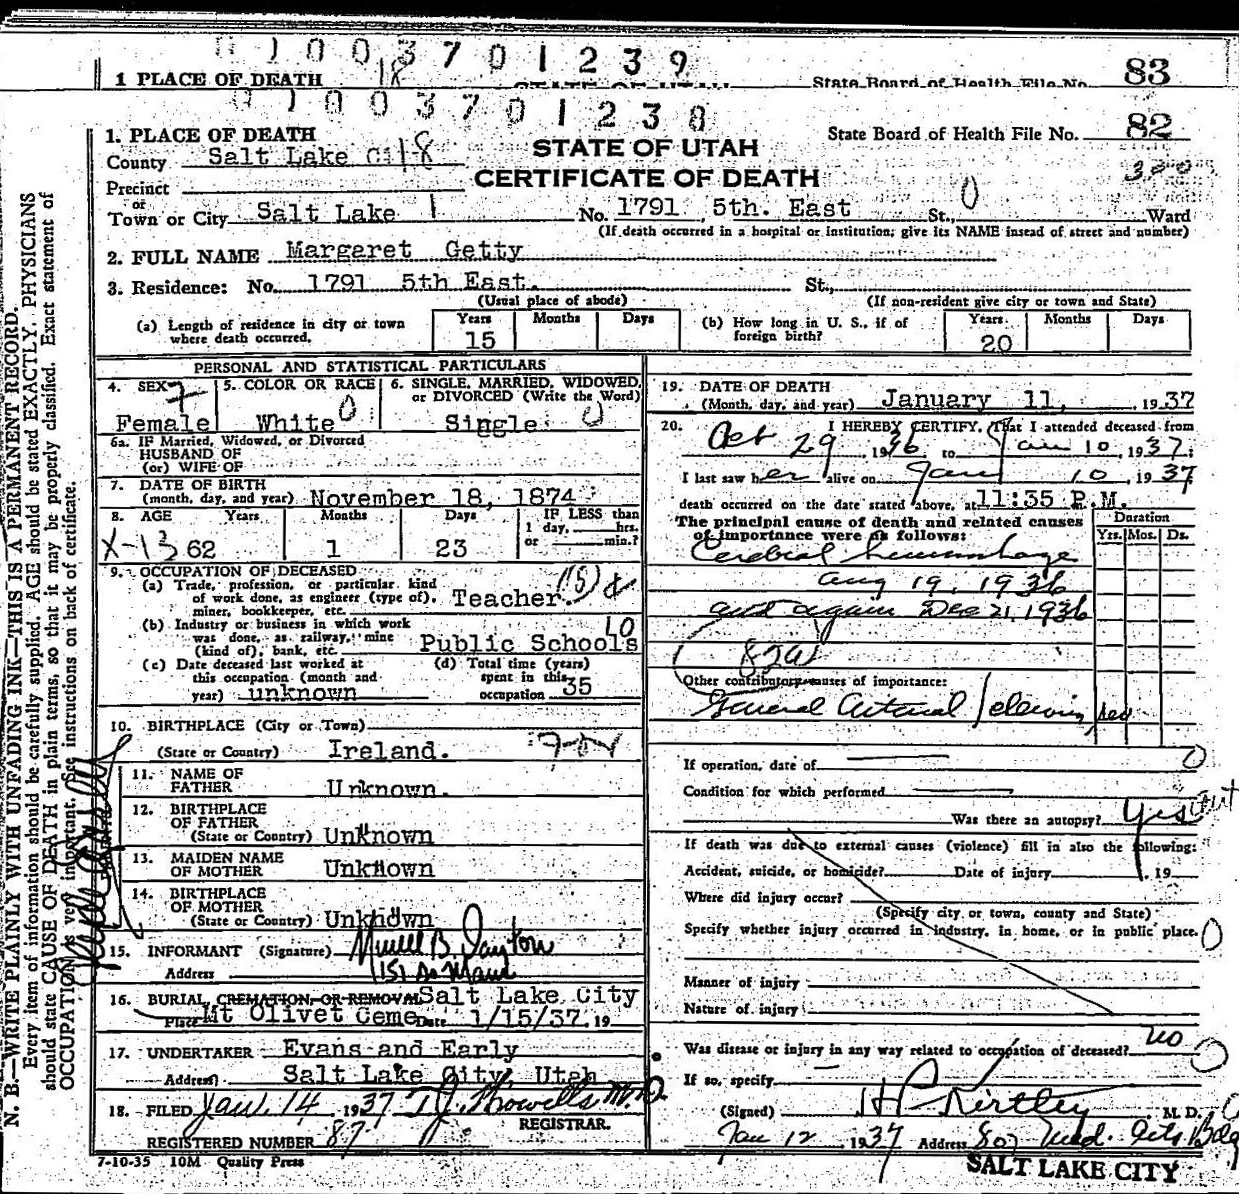 0 1 0 0 3 7 0 1 2 3 9
1 PLACE OF DEATH 18 STATE OF UTAH State Board of Health File No. 83
0 1 0 0 3 7 0 1 2 3 8
1. PLACE OF DEATH State Board of Health File No. 82
County Salt Lake Ci 18 STATE OF UTAH
CERTIFICATE OF DEATH 300
Precinct
or
Town or City Salt Lake 1 No. 1791 5th. East St., 0 Ward
(If death occurred in a hospital or institution; give its NAME insead of street and number)
2. FULL NAME Margaret Getty
3. Residence: No. 1791 5th East. St.,
(Usual place of abode) (If non-resident give city or town and State)
(a) Length of residence in city or town where death occurred. Years 15 Months Days
(b) How long in U. S., if of foreign birth? Years 20 Months Days
PERSONAL AND STATISTICAL PARTICULARS
4. SEX 7 5. COLOR OR RACE 6. SINGLE, MARRIED, WIDOWED,
or DIVORCED (Write the Word)
Female White 0 Single 0
6a. IF Married, Widowed, or Divorced
HUSBAND OF
(or) WIFE OF
7. DATE OF BIRTH
(month, day, and year) November 18, 1874
8. AGE Years Months Days IF LESS than
1 day, hrs.
or min.?
X-13 62 1 23
9. OCCUPATION OF DECEASED
(a) Trade, profession, or particular kind
of work done, as engineer (type of),
miner, bookkeeper, etc. Teacher. (15)
(b) Industry or business in which work 10
was done, as railway, mine
(kind of), bank, etc. Public Schools
(c) Date deceased last worked at
this occupation (month and
year) unknown
(d) Total time (years)
spent in this
occupation 35
10. BIRTHPLACE (City or Town)
(State or Country) Ireland.
11. NAME OF
FATHER Unknown.
12. BIRTHPLACE
OF FATHER
(State or Country) Unknown
13. MAIDEN NAME
OF MOTHER Unknown
14. BIRTHPLACE
OF MOTHER
(State or Country) Unknown
15. INFORMANT (Signature) B. Dayton
Address 151 So Main
16. BURIAL, CREMATION, OR REMOVAL Salt Lake City
Place Mt Olivet Ceme Date 1/15/37. 19
17. UNDERTAKER Evans and Early
Address Salt Lake City, Utah
18. FILED Jan. 14 1937 T.J. Howells M.D.
REGISTRAR.
REGISTERED NUMBER 87
7-10-35 10M Quality Press
19. DATE OF DEATH
(Month, day, and year) January 11, 1937
20. I HEREBY CERTIFY, That I attended deceased from
Oct 29, 1936 to Jan 10, 1937.
I last saw her alive on Jan 10, 1937
death occurred on the date stated above, at 11:35 P.M.
The principal cause of death and related causes Duration
of importance were as follows: Yrs. Mos. Ds.
Cerebral hemorrhage
Aug 19, 1936
and again Dec 21, 1936
82a
Other contributory causes of importance:
General Arterial Sclerosis
If operation, date of 0
Condition for which performed
Was there an autopsy? Yes
If death was due to external causes (violence) fill in also the following:
Accident, suicide, or homicide? Date of injury , 19
Where did injury occur?
(Specify city or town, county and State)
Specify whether injury occurred in industry, in home, or in public place. 0
Manner of injury
Nature of injury
Was disease or injury in any way related to occupation of deceased? no
If so, specify
(Signed) H P Kirtley M. D.
Jan 12 1937 Address 807 Med. Arts Bldg
SALT LAKE CITY
N. B.—WRITE PLAINLY WITH UNFADING INK—THIS IS A PERMANENT RECORD.
Every item of information should be carefully supplied. AGE should be stated EXACTLY. PHYSICIANS
should state CAUSE OF DEATH in plain terms, so that it may be properly classified. Exact statement of
OCCUPATION is very important. See instructions on back of certificate.